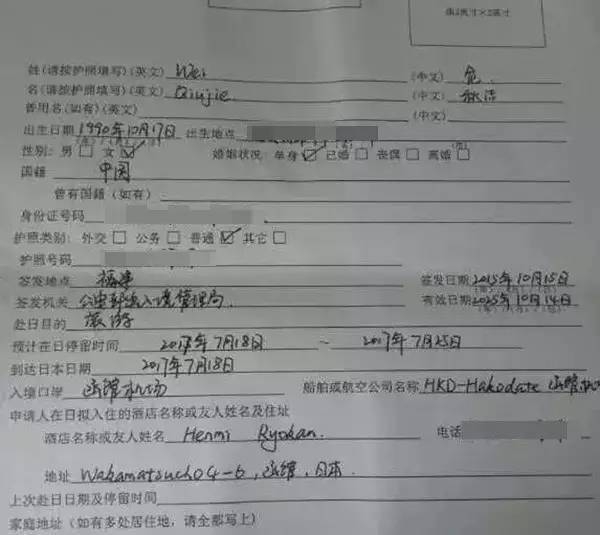 像2英寸×2英寸
姓(请按护照填写)(英文) Wei (中文) 危
名(请按护照填写)(英文) Qiujie (中文) 秋洁
曾用名(如有)(英文) (中文)
出生日期 1990年10月17日 出生地点
性别：男□ 女☑ 婚姻状况：单身☑ 已婚□ 丧偶□ 离婚□
国籍 中国
曾有国籍（如有）
身份证号码
护照类别：外交□ 公务□ 普通☑ 其它□
护照号码
签发地点 福建 签发日期 2015年10月15日
签发机关 公安部出入境管理局 有效日期 2025年10月14日
赴日目的 旅游
预计在日停留时间 2017年7月18日 ~ 2017年7月25日
到达日本日期 2017年7月18日
入境口岸 函馆机场 船舶或航空公司名称 HKD-Hakodate 函馆
申请人在日拟入住的酒店名称或友人姓名及住址
酒店名称或友人姓名 Henmi Ryokan. 电话
地址 Wakamatsucho 4-6, 函馆, 日本.
上次赴日日期及停留时间
家庭地址（如有多处居住地，请全部写上）